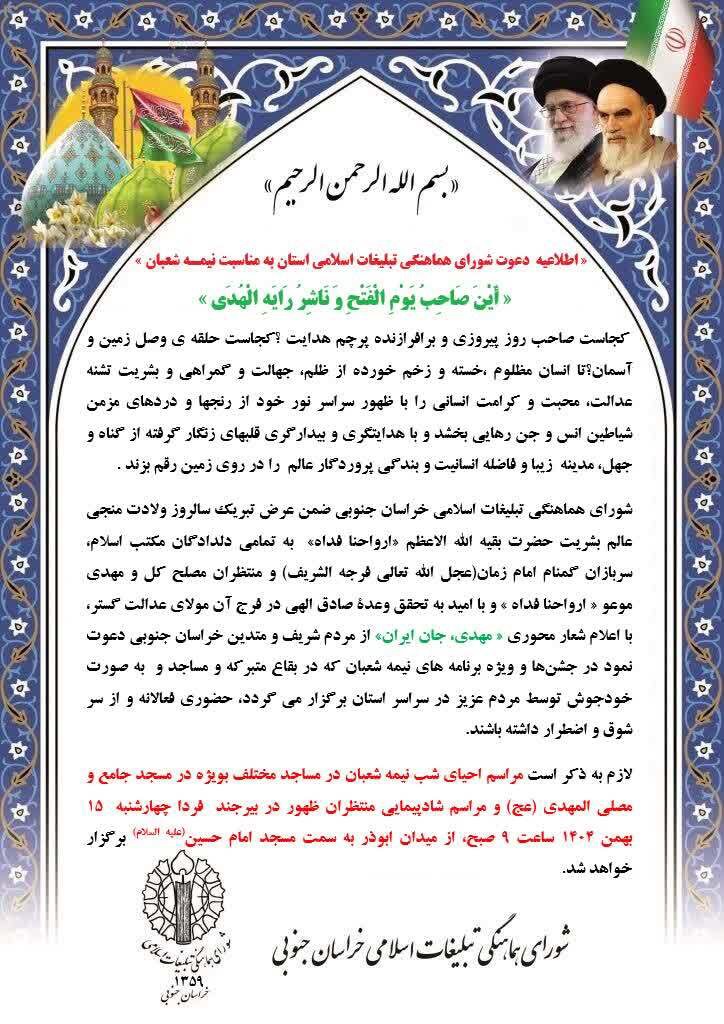 «بسم الله الرحمن الرحیم»
« اطلاعیه دعوت شورای هماهنگی تبلیغات اسلامی استان به مناسبت نیمــه شعبان »
« أیْنَ صَاحِبُ یَوْمِ الْفَتْحِ وَ نَاشِرُ رَایَهِ الْهُدَی »
کجاست صاحب روز پیروزی و برافرازنده پرچم هدایت ؟کجاست حلقه ی وصل زمین و
آسمان؟تا انسان مظلوم ،خسته و زخم خورده از ظلم، جهالت و گمراهی و بشریت تشنه
عدالت، محبت و کرامت انسانی را با ظهور سراسر نور خود از رنجها و دردهای مزمن
شیاطین انس و جن رهایی بخشد و با هدایتگری و بیدارگری قلبهای زنگار گرفته از گناه و
جهل، مدینه زیبا و فاضله انسانیت و بندگی پروردگار عالم را در روی زمین رقم بزند .
شورای هماهنگی تبلیغات اسلامی خراسان جنوبی ضمن عرض تبریک سالروز ولادت منجی
عالم بشریت حضرت بقیه الله الاعظم «ارواحنا فداه» به تمامی دلدادگان مکتب اسلام،
سربازان گمنام امام زمان(عجل الله تعالی فرجه الشریف) و منتظران مصلح کل و مهدی
موعو « ارواحنا فداه » و با امید به تحقق وعدهٔ صادق الهی در فرج آن مولای عدالت گستر،
با اعلام شعار محوری « مهدی، جان ایران» از مردم شریف و متدین خراسان جنوبی دعوت
نمود در جشن‌ها و ویژه برنامه های نیمه شعبان که در بقاع متبرکه و مساجد و به صورت
خودجوش توسط مردم عزیز در سراسر استان برگزار می گردد، حضوری فعالانه و از سر
شوق و اضطرار داشته باشند.
لازم به ذکر است مراسم احیای شب نیمه شعبان در مساجد مختلف بویژه در مسجد جامع و
مصلی المهدی (عج) و مراسم شادپیمایی منتظران ظهور در بیرجند فردا چهارشنبه ۱۵
بهمن ۱۴۰۴ ساعت ۹ صبح، از میدان ابوذر به سمت مسجد امام حسین(علیه السلام) برگزار
خواهد شد.
شورای هماهنگی تبلیغات اسلامی خراسان جنوبی
شورای هماهنگی تبلیغات اسلامی
۱۳۵۹
خراسان جنوبی